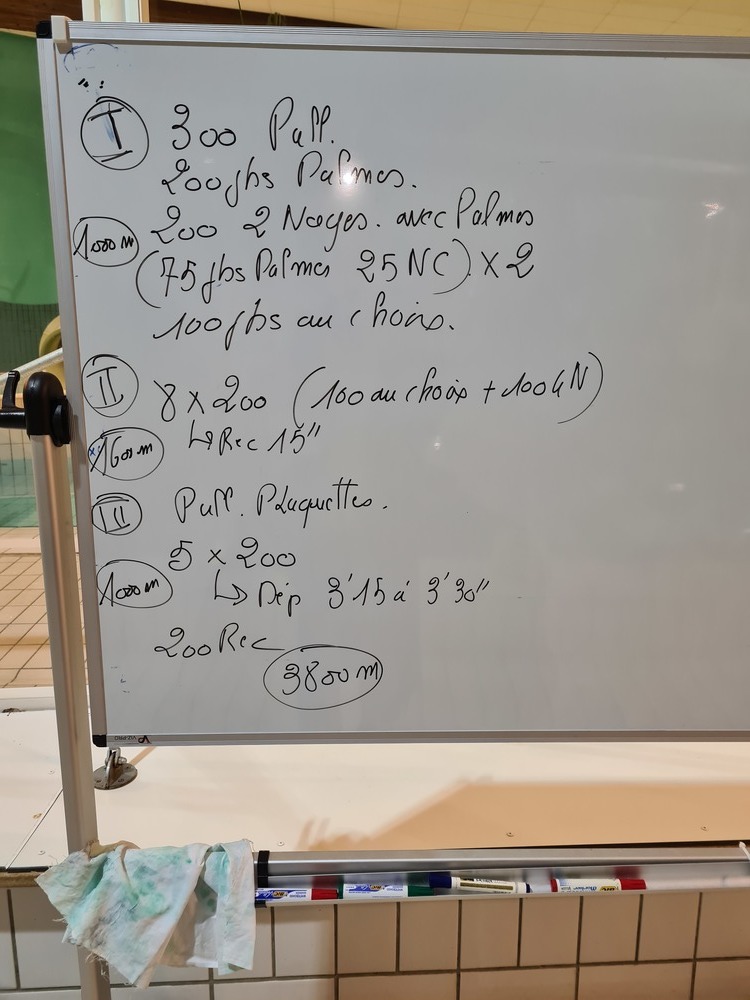 I 300 Pull.
200 jbs Palmes.
200 2 Nages. avec Palmes
1000 m
(75 jbs Palmes 25 NC) x 2
100 jbs au choix.
II 8 x 200 (100 au choix + 100 4N)
↳ Rec 15"
1600 m
III Pull. Plaquettes.
5 x 200
1000 m ↳ Dép 3'15 à 3'30"
200 Rec
3800 m